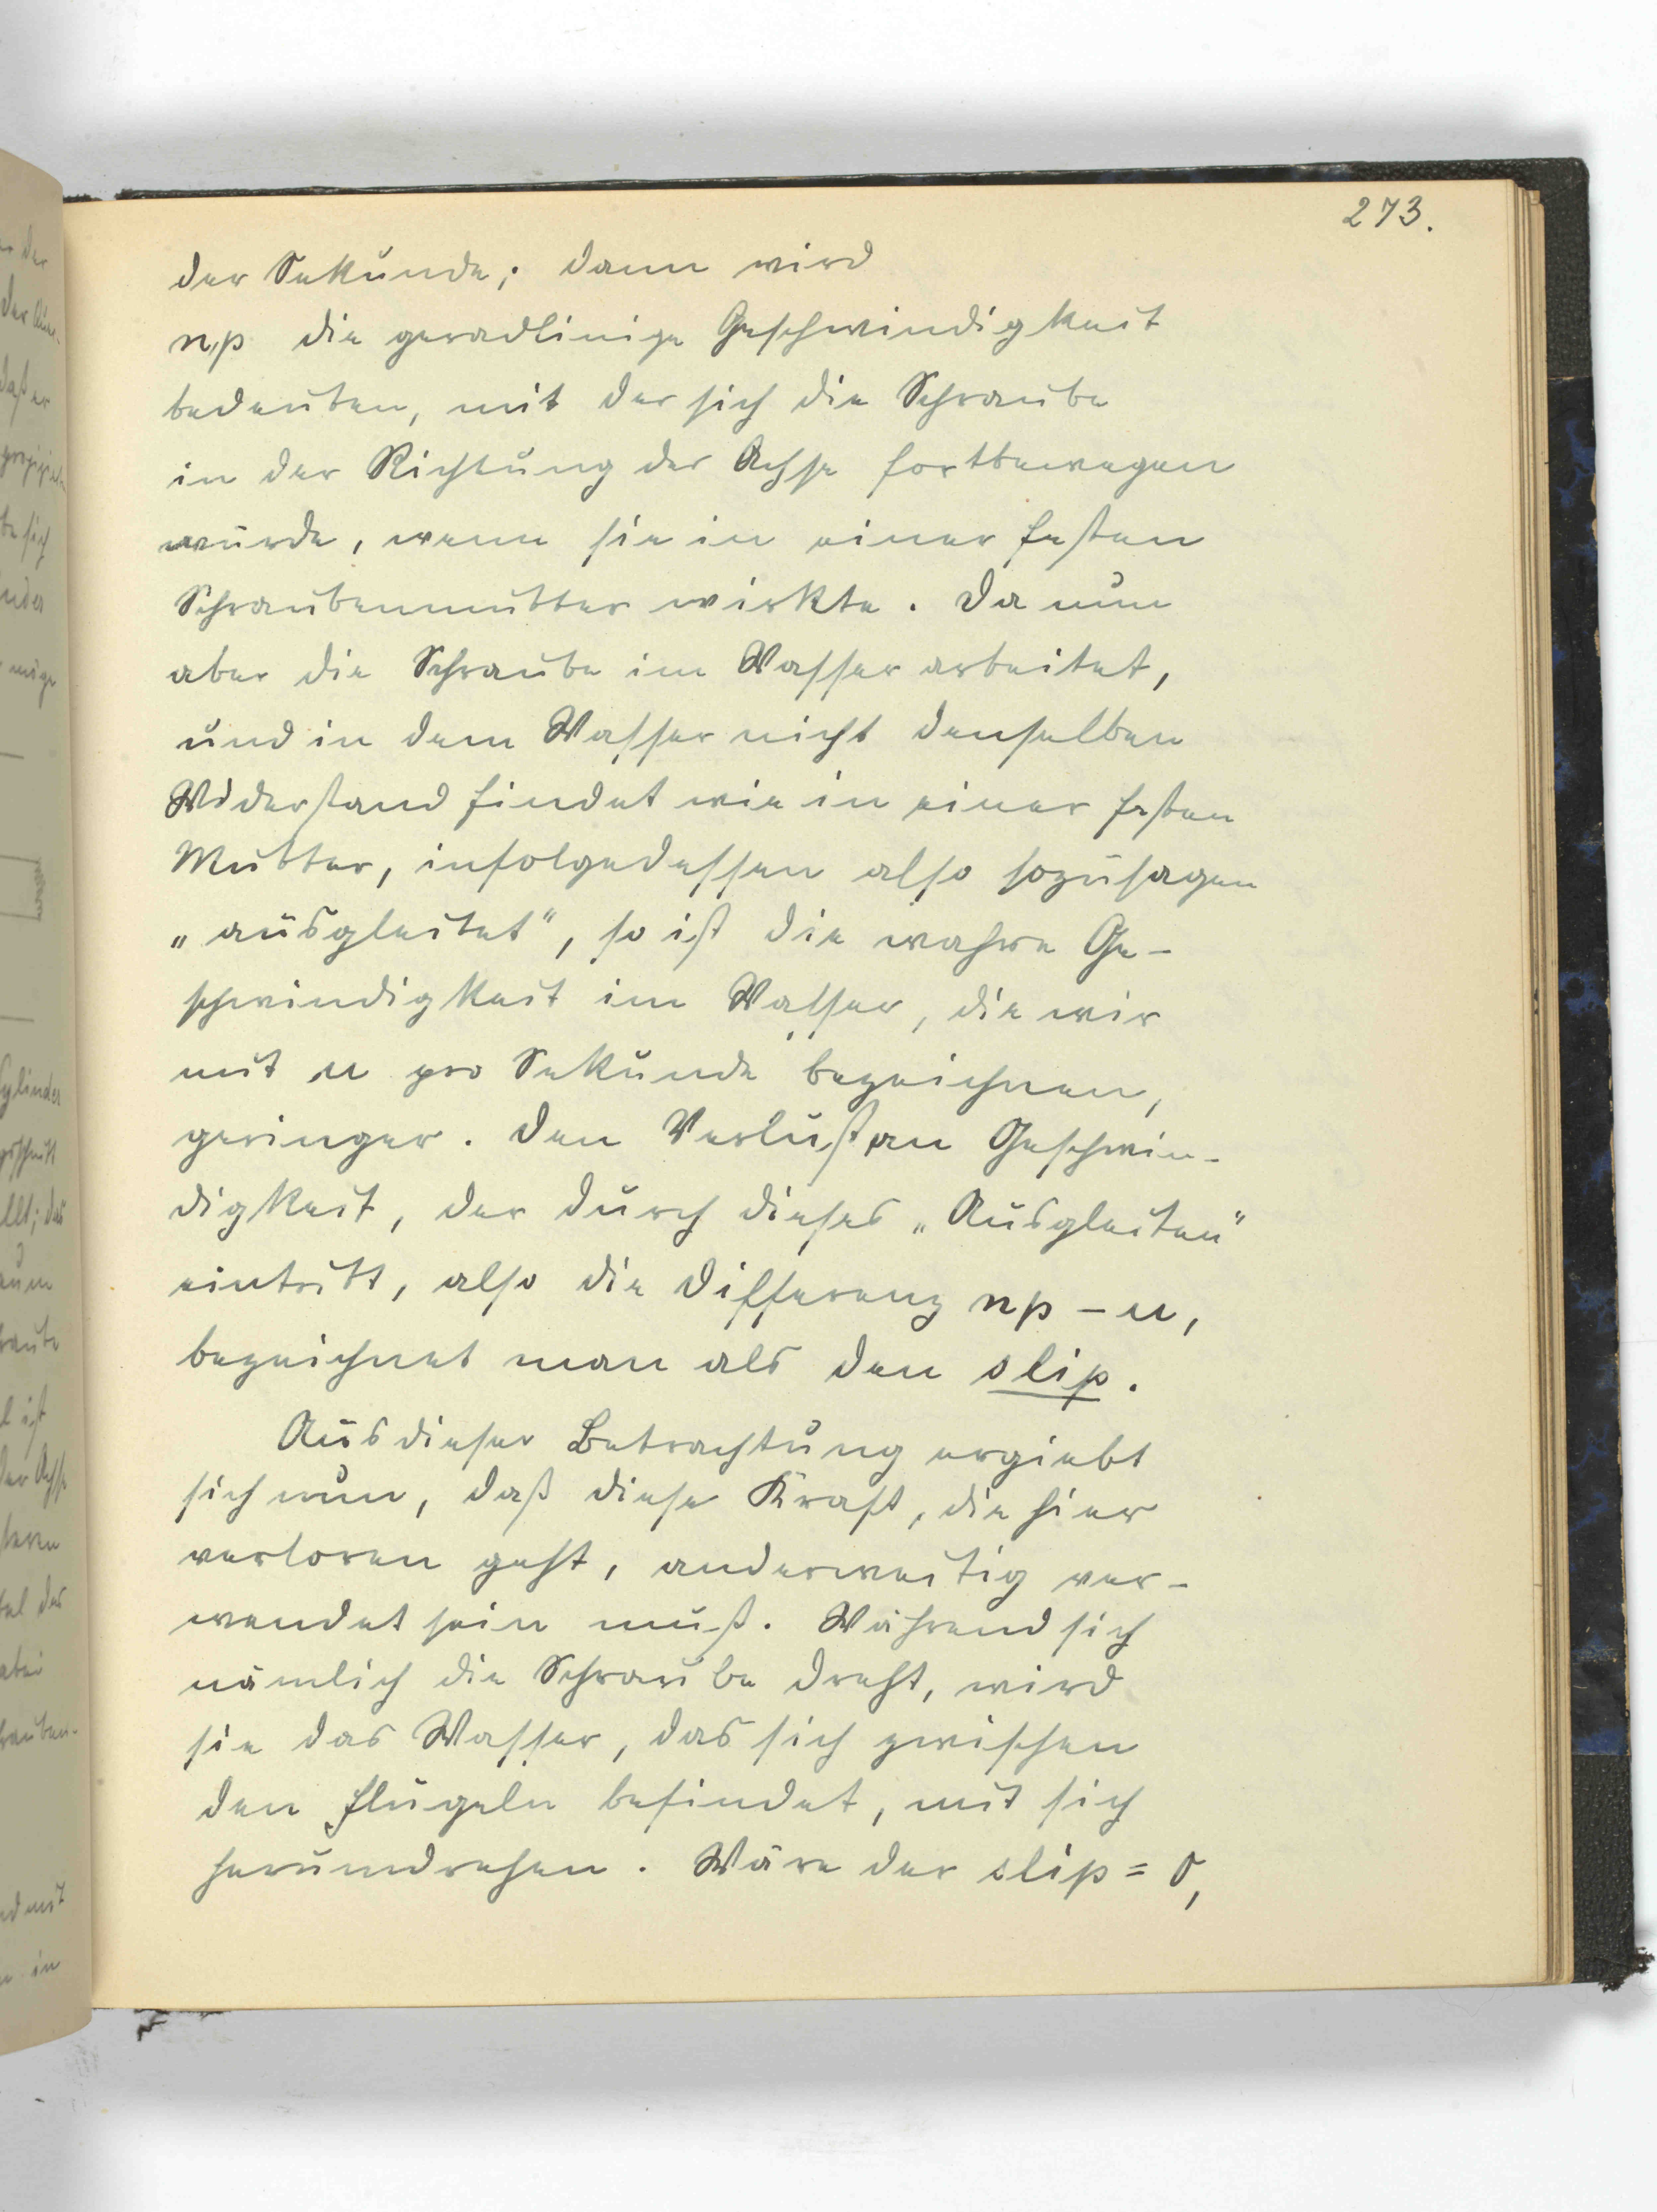 273.
der Sekunde; dann wird
np die geradlinige Geschwindigkeit
bedeuten, mit der sich die Schraube
in der Richtung der Achse fortbewegen
würde, wenn sie in einer festen
Schraubenmutter wirkte. Da nun
aber die Schraube im Wasser arbeitet,
und in dem Wasser nicht denselben
Widerstand findet wie in einer festen
Mutter, infolgedessen also sozusagen
„ausgleitet“, so ist die wahre Ge-
schwindigkeit im Wasser, die wir
mit u pro Sekunde bezeichnen,
geringer. Den Verlust an Geschwin-
digkeit, der durch dieses „Ausgleiten“
eintritt, also die Differenz np – u,
bezeichnet man als den slip.
Aus dieser Betrachtung ergiebt
sich nun, daß diese Kraft, die hier
verloren geht, anderweitig ver-
wendet sein muß. Während sich
nämlich die Schraube dreht, wird
sie das Wasser, das sich zwischen
den Flügeln befindet, mit sich
herumdrehen. Wäre der slip = 0,